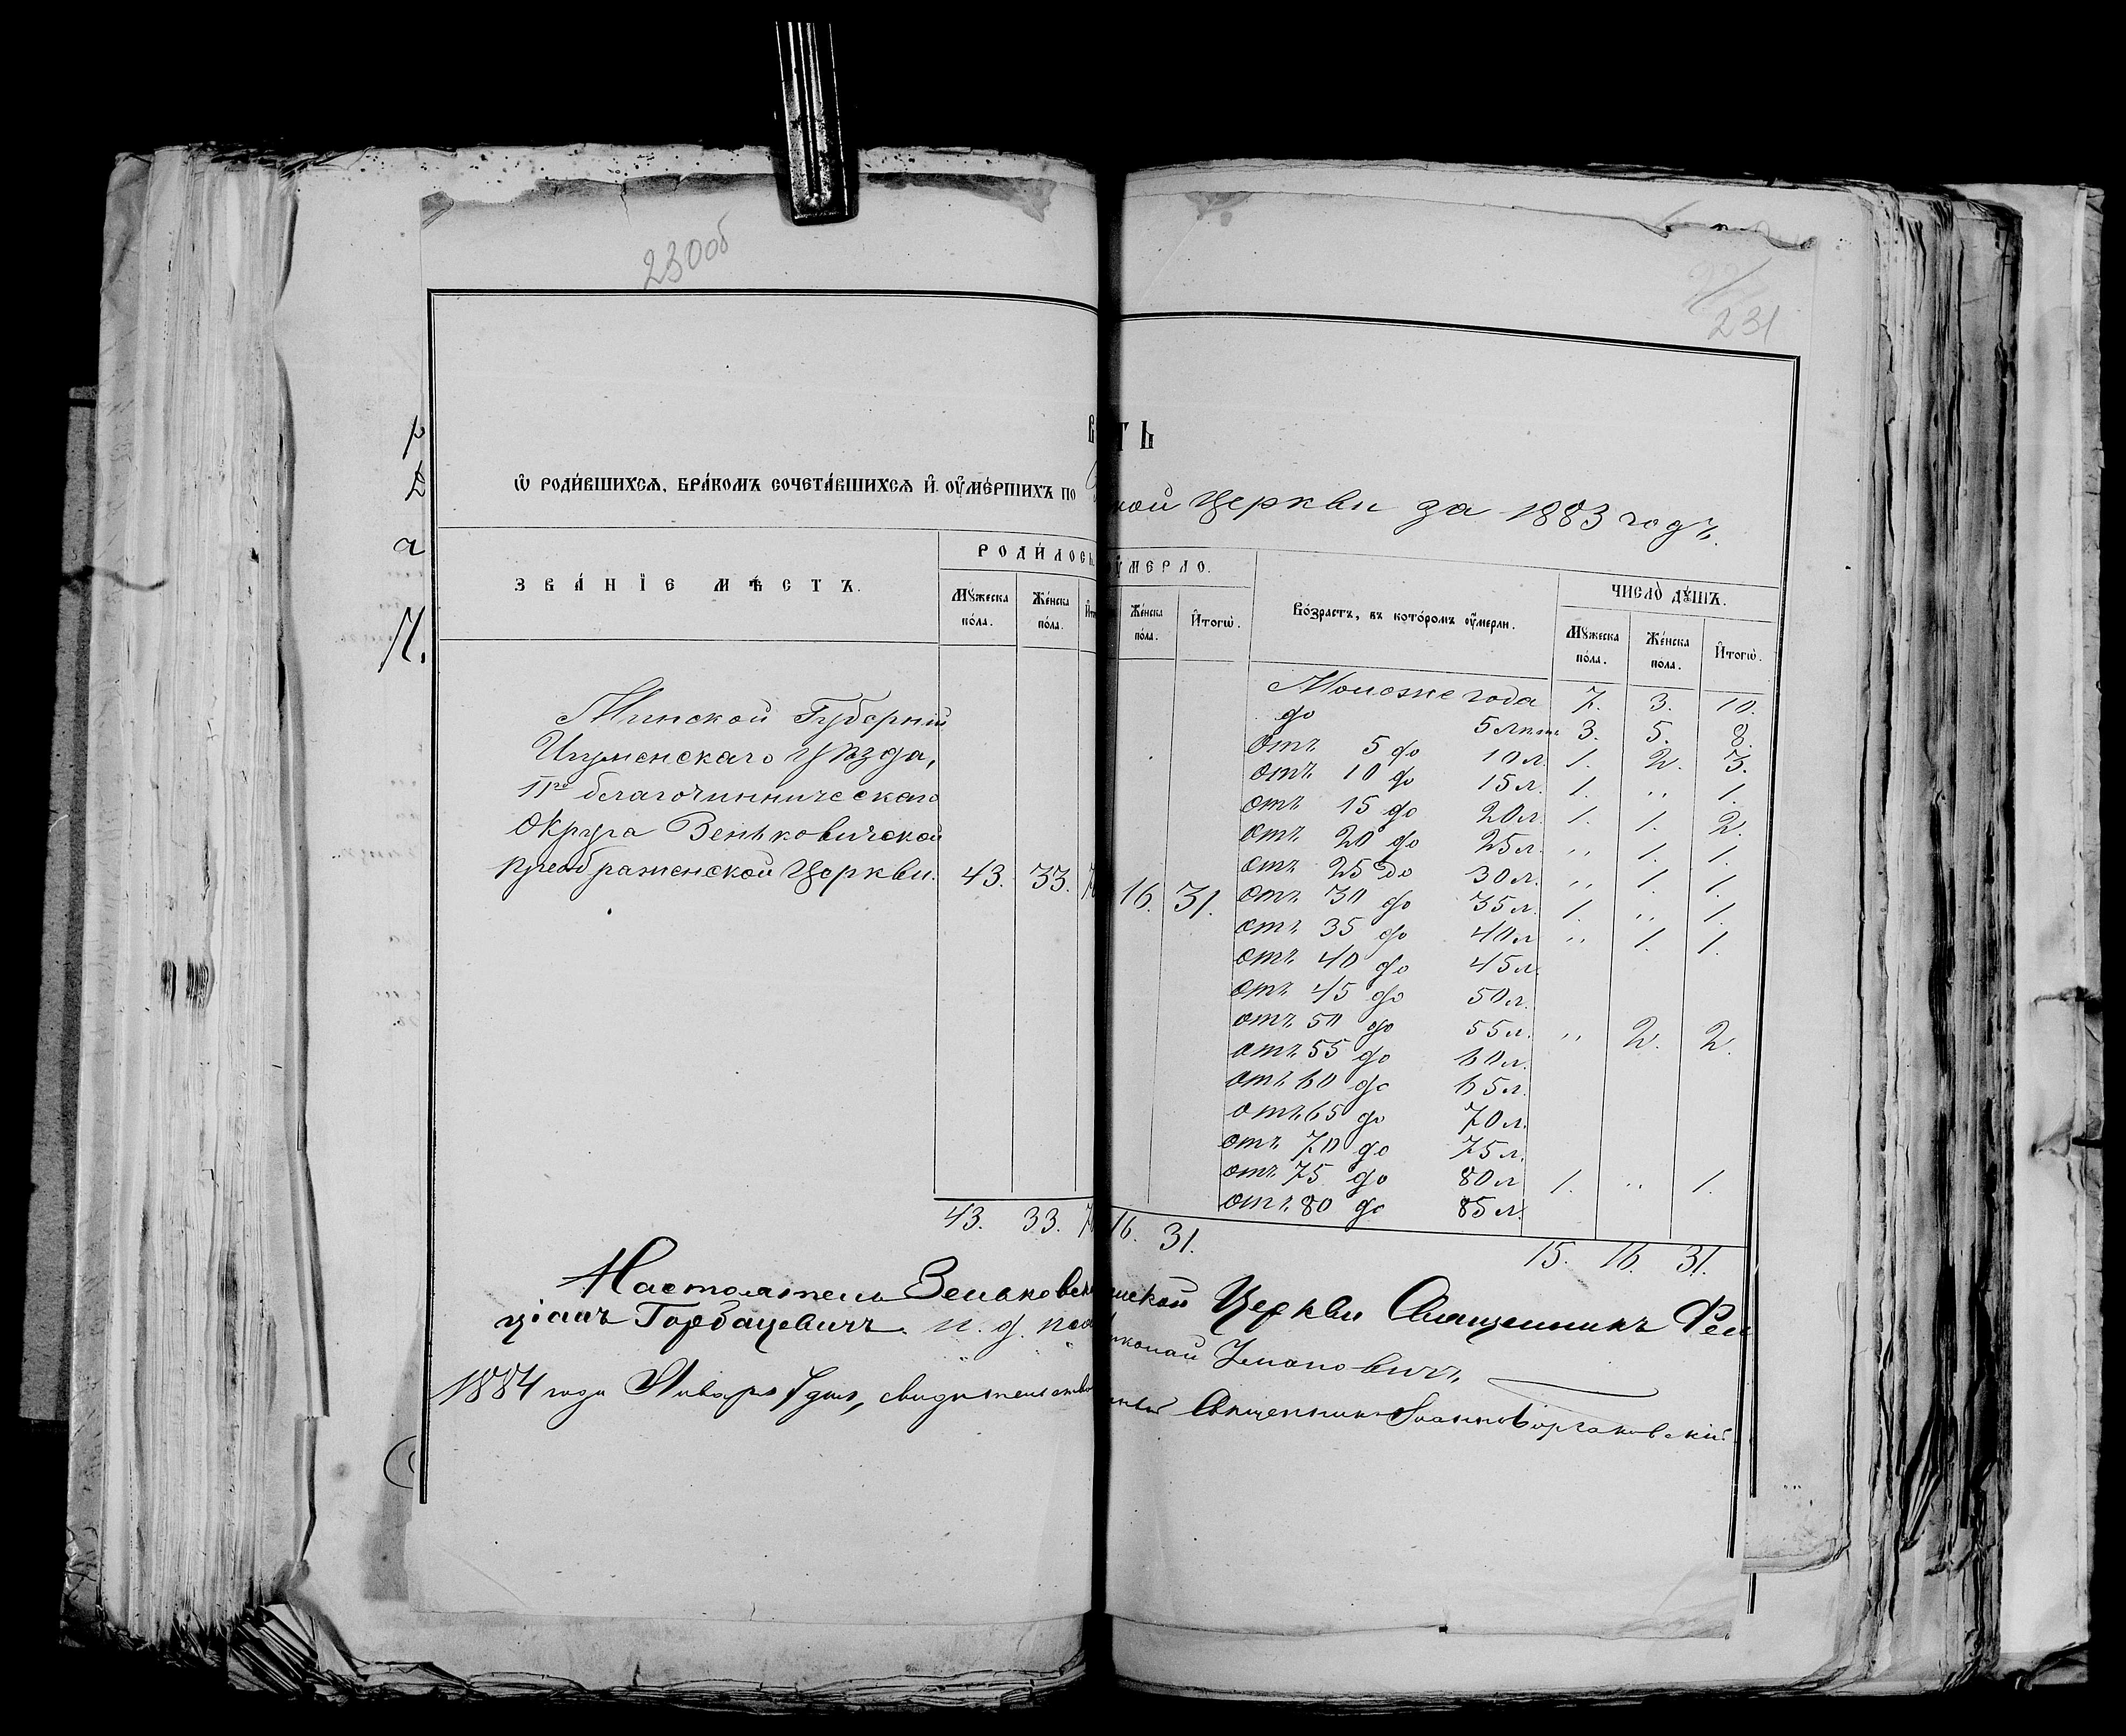 230об
231
ТЬ
Ѡ РОДИ́ВШИХСѦ, БРА́КОМЪ СОЧЕТА́ВШИХСѦ И҆ ОУ҆МЕ́РШИХЪ ПО
кой Церкви за 1883 годъ.
ЗВА́НЇЕ МѢСТЪ.
РОДИ́ЛОСЬ
Мꙋ́жеска по́ла.
Же́нска по́ла.
ОУ҆́МЕРЛО.
Же́нска по́ла.
И҆тогѡ̀.
Во́зрастъ, въ кото́ромъ оу҆́мерли.
ЧИСЛО̀ ДꙊ́ШЪ.
Мꙋ́жеска по́ла.
Же́нска по́ла.
И҆тогѡ̀.
Минской Губерніи
Игуменскаго уѣзда,
благочинническаго
округа Зеньковичской
преображенской Церкви. 43. 33. 16. 31.
Моложе года 7. 3. 10.
до 5 лѣтъ 3. 5. 8.
отъ 5 до 10 л. 1. 2. 3.
отъ 10 до 15 л. 1. „ 1.
отъ 15 до 20 л. 1. 1. 2.
отъ 20 до 25 л. „ 1. 1.
отъ 25 до 30 л. „ 1. 1.
отъ 30 до 35 л. 1. „ 1.
отъ 35 до 40 л. „ 1. 1.
отъ 40 до 45 л.
отъ 45 до 50 л.
отъ 50 до 55 л. „ 2. 2.
отъ 55 до 60 л.
отъ 60 до 65 л.
отъ 65 до 70 л.
отъ 70 до 75 л.
отъ 75 до 80 л. 1. „ 1.
отъ 80 до 85 л.
43. 33. 16. 31. 15. 16. 31.
Настоятель Церкви Священникъ
Горбацевичъ. и. д.
1884 года Января 7 дня, Священникъ Іоаннъ